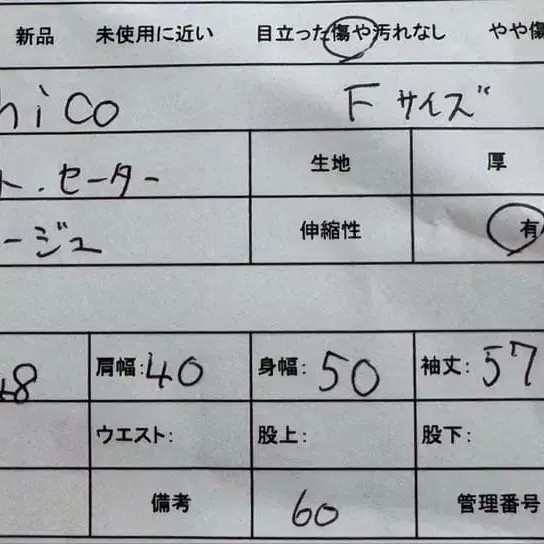 新品 未使用に近い 目立った傷や汚れなし やや傷
hico Fサイズ
生地 厚
ト・セーター
ージュ 伸縮性 有
48 肩幅:40 身幅:50 袖丈:57
ウエスト: 股上: 股下:
備考 60 管理番号